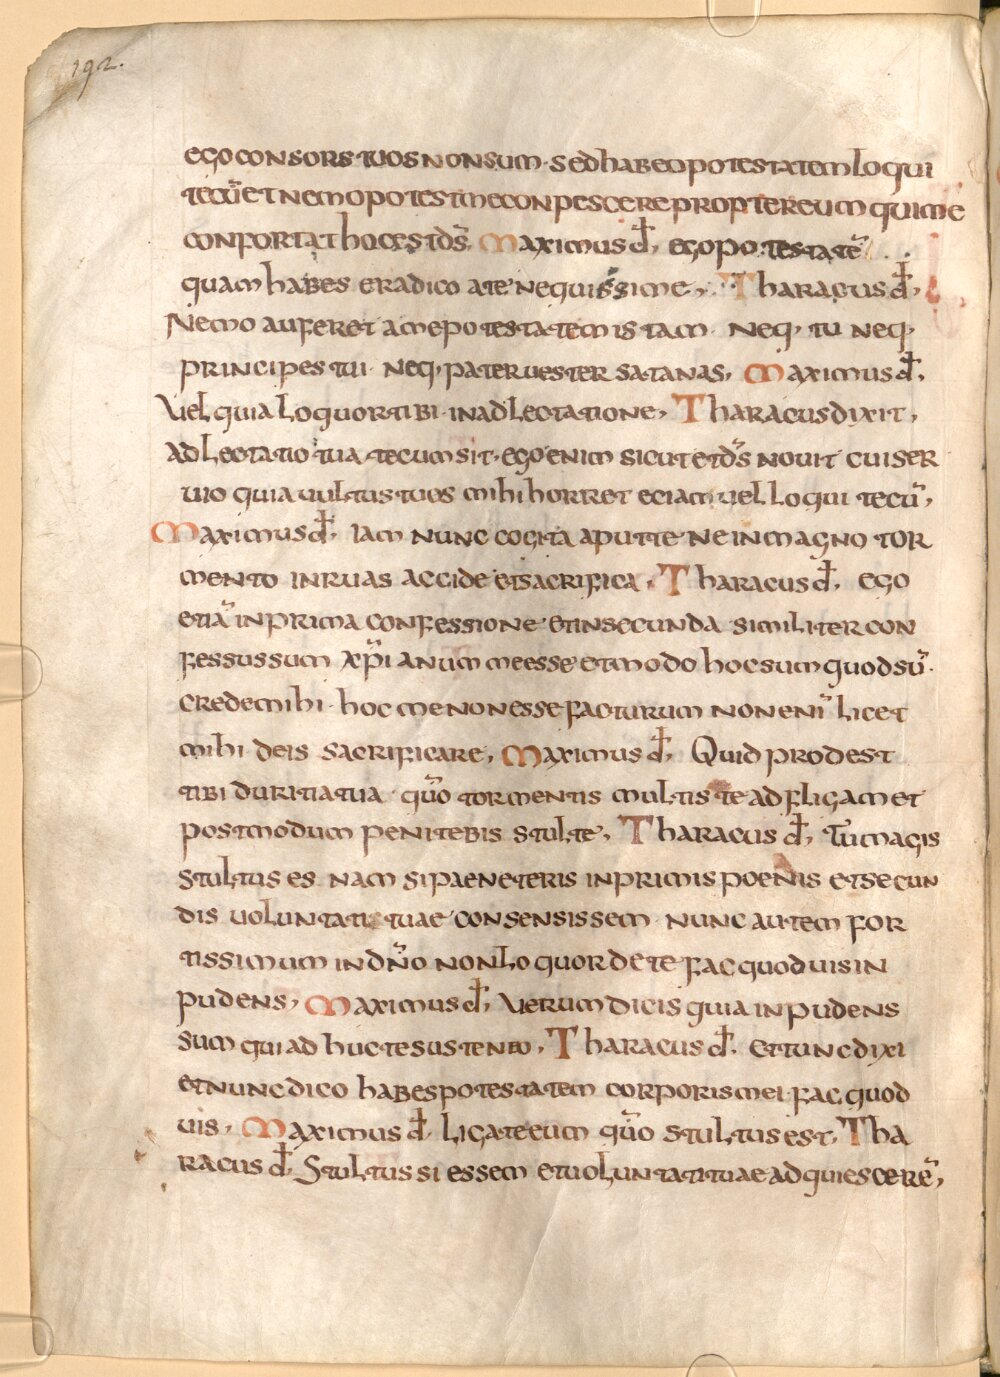 192.
ego consors tuos non sum · sed habeo potestatem loqui
tecū et nemo potest me conpescere propter eum qui me
confortat hoc est d̄s, Maximus d̄, ego potestatē
quam habes eradico a te nequissime, Tharacus d̄,
Nemo auferet a me potestatem istam · neq, tu neq,
principes tui · neq, pater uester satanas, Maximus d̄,
Vel quia loquor tibi · in adlectatione, Tharacus dixit,
adlectatio tua · tecum sit · ego enim sicut et d̄s nouit cui ser
uio quia uultus tuos mihi horret eciam uel loqui tecū,
Maximus d̄, Iam nunc cogita aput te ne in magno tor
mento inruas accide et sacrifica, Tharacus d̄, ego
etiā in prima confessione et in secunda similiter con
fessus sum xp̄ianum me esse et modo hoc sum quod sū ·
crede mihi · hoc me non esse facturum non enī licet
mihi deis sacrificare, Maximus d̄, Quid prodest
tibi duritia tua · qūo tormentis multis te adfligam et
postmodum penitebis stulte, Tharacus d̄, Tu magis
stultus es nam si paeneteris in primis poenis et secun
dis uoluntati tuae consensissem · nunc autem for
tissimum in dn̄o non loquor de te fac quod uis in
pudens, Maximus d̄, Verum dicis quia inpudens
sum qui adhuc te susteneo, Tharacus d̄, et tunc dixi
et nunc dico habes potestatem corporis mei · fac quod
uis, Maximus d̄, Ligate eum qūo stultus est, Tha
racus d̄, Stultus si essem et uoluntati tuae adquiescerē,